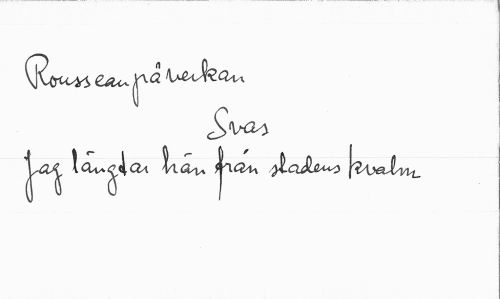 Rousseaupåverkan
Svas
Jag längtar hän från stadens kvalm